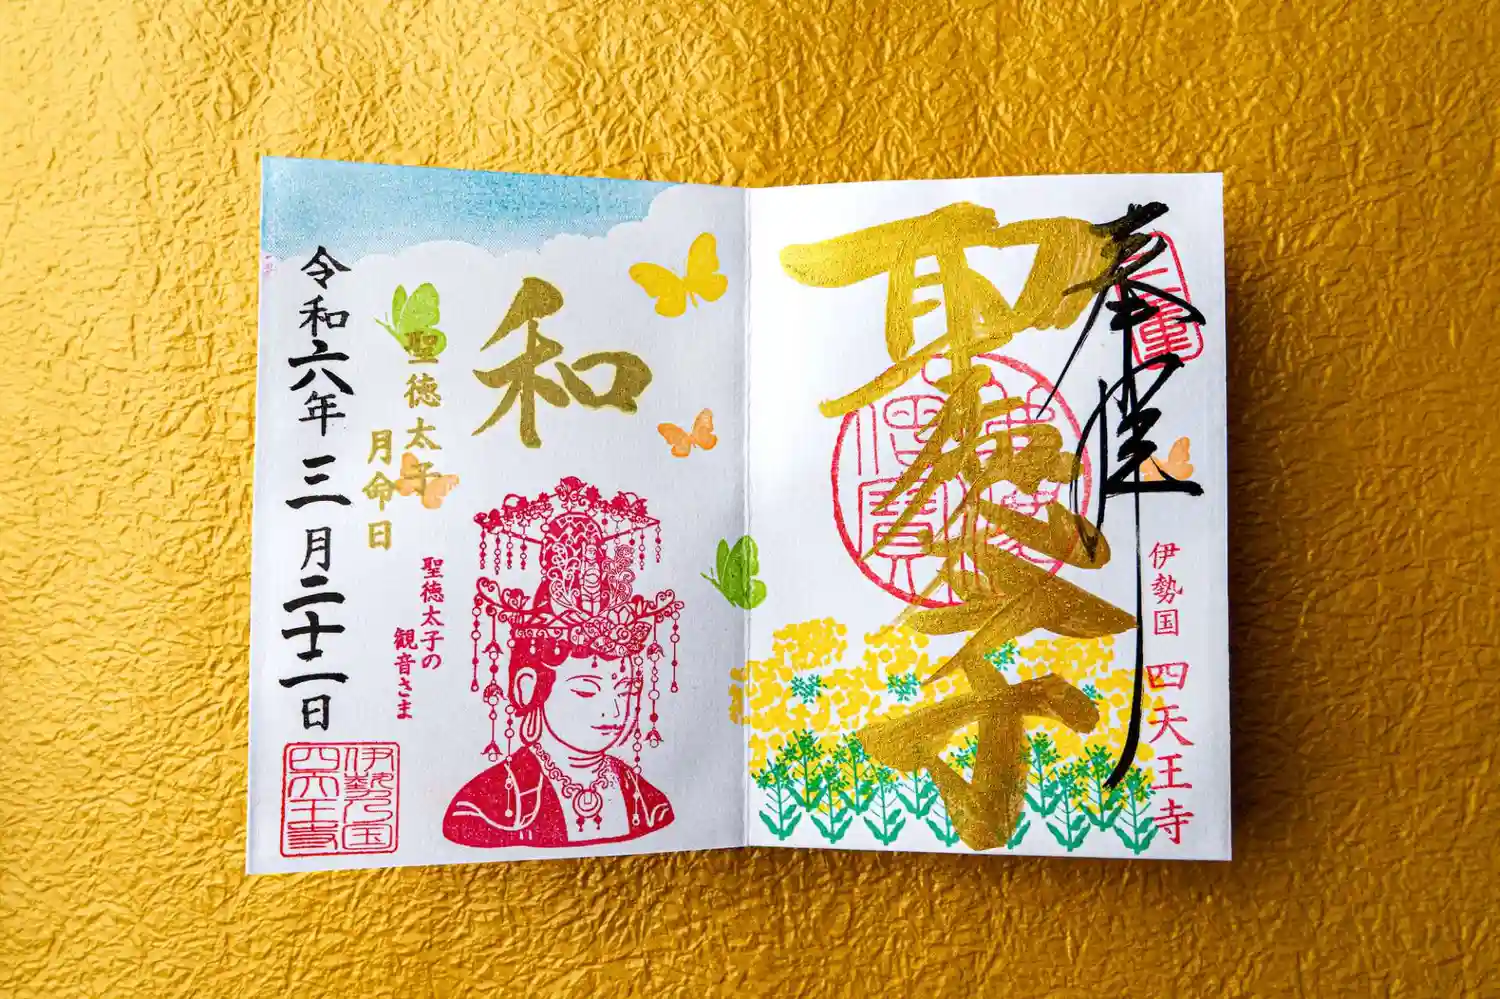 奉拝
三重
伊勢国 四天王寺
聖徳太子
佛法
僧寶
和
聖徳太子
月命日
聖徳太子の
観音さま
令和六年三月二十二日
四天王寺